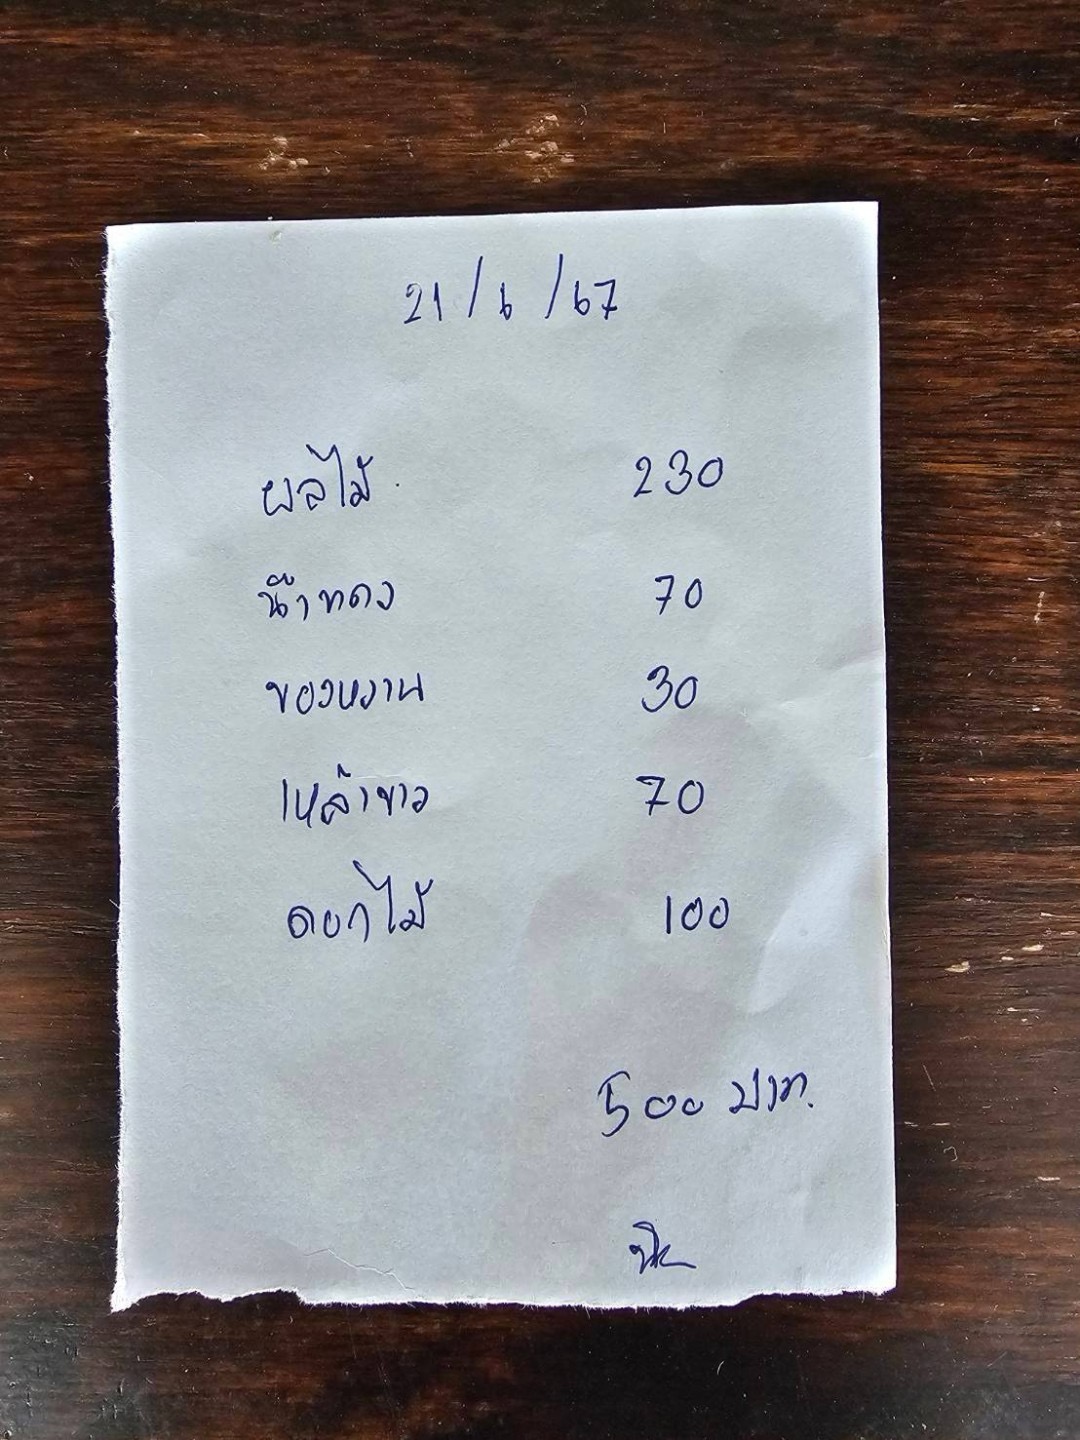 21/6/67
ผลไม้ 230
น้ำแดง 70
ของหวาน 30
เหล้าขาว 70
ดอกไม้ 100
500 บาท.